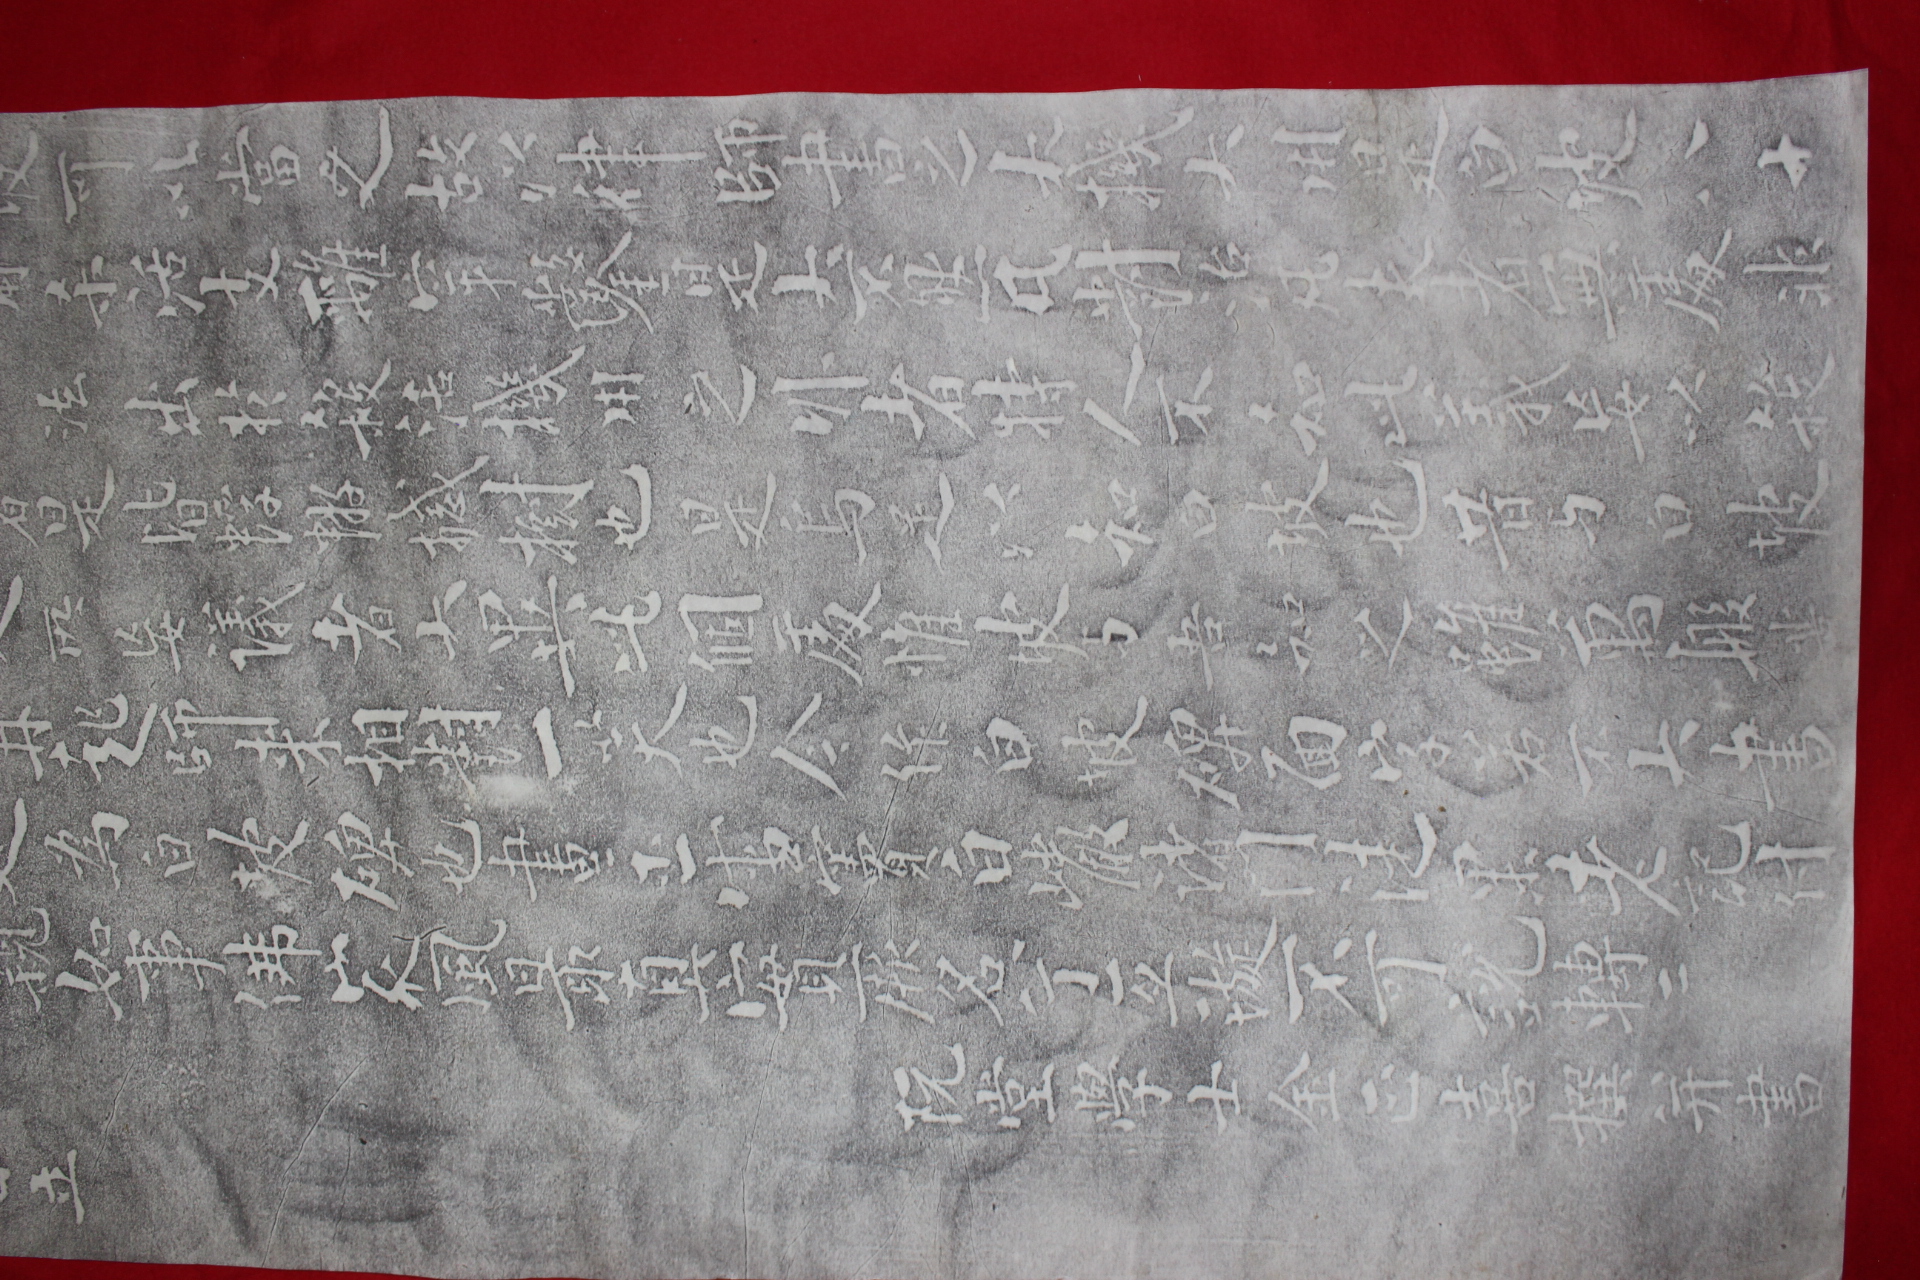 坡可以當之故以律師書之大機大用是白坡八十
用殺活支離穿鑿是大不然凡對治凡夫者無處非
法出於殺活機用之外者特人不知此義妄以殺
者是皆蜉蝣撼樹也是烏足以知白坡也昔与白坡
人所妄議者大異此個處惟坡与吾知之雖萬般苦
再起師来相對一笑也今作白坡碑面字若不大書
足為白坡碑也書示雪竇白巖諸門徒果老記付
親如事佛家風最真實厥名兮亘璇不可說轉〻
阮堂學士金正喜撰并書
日立